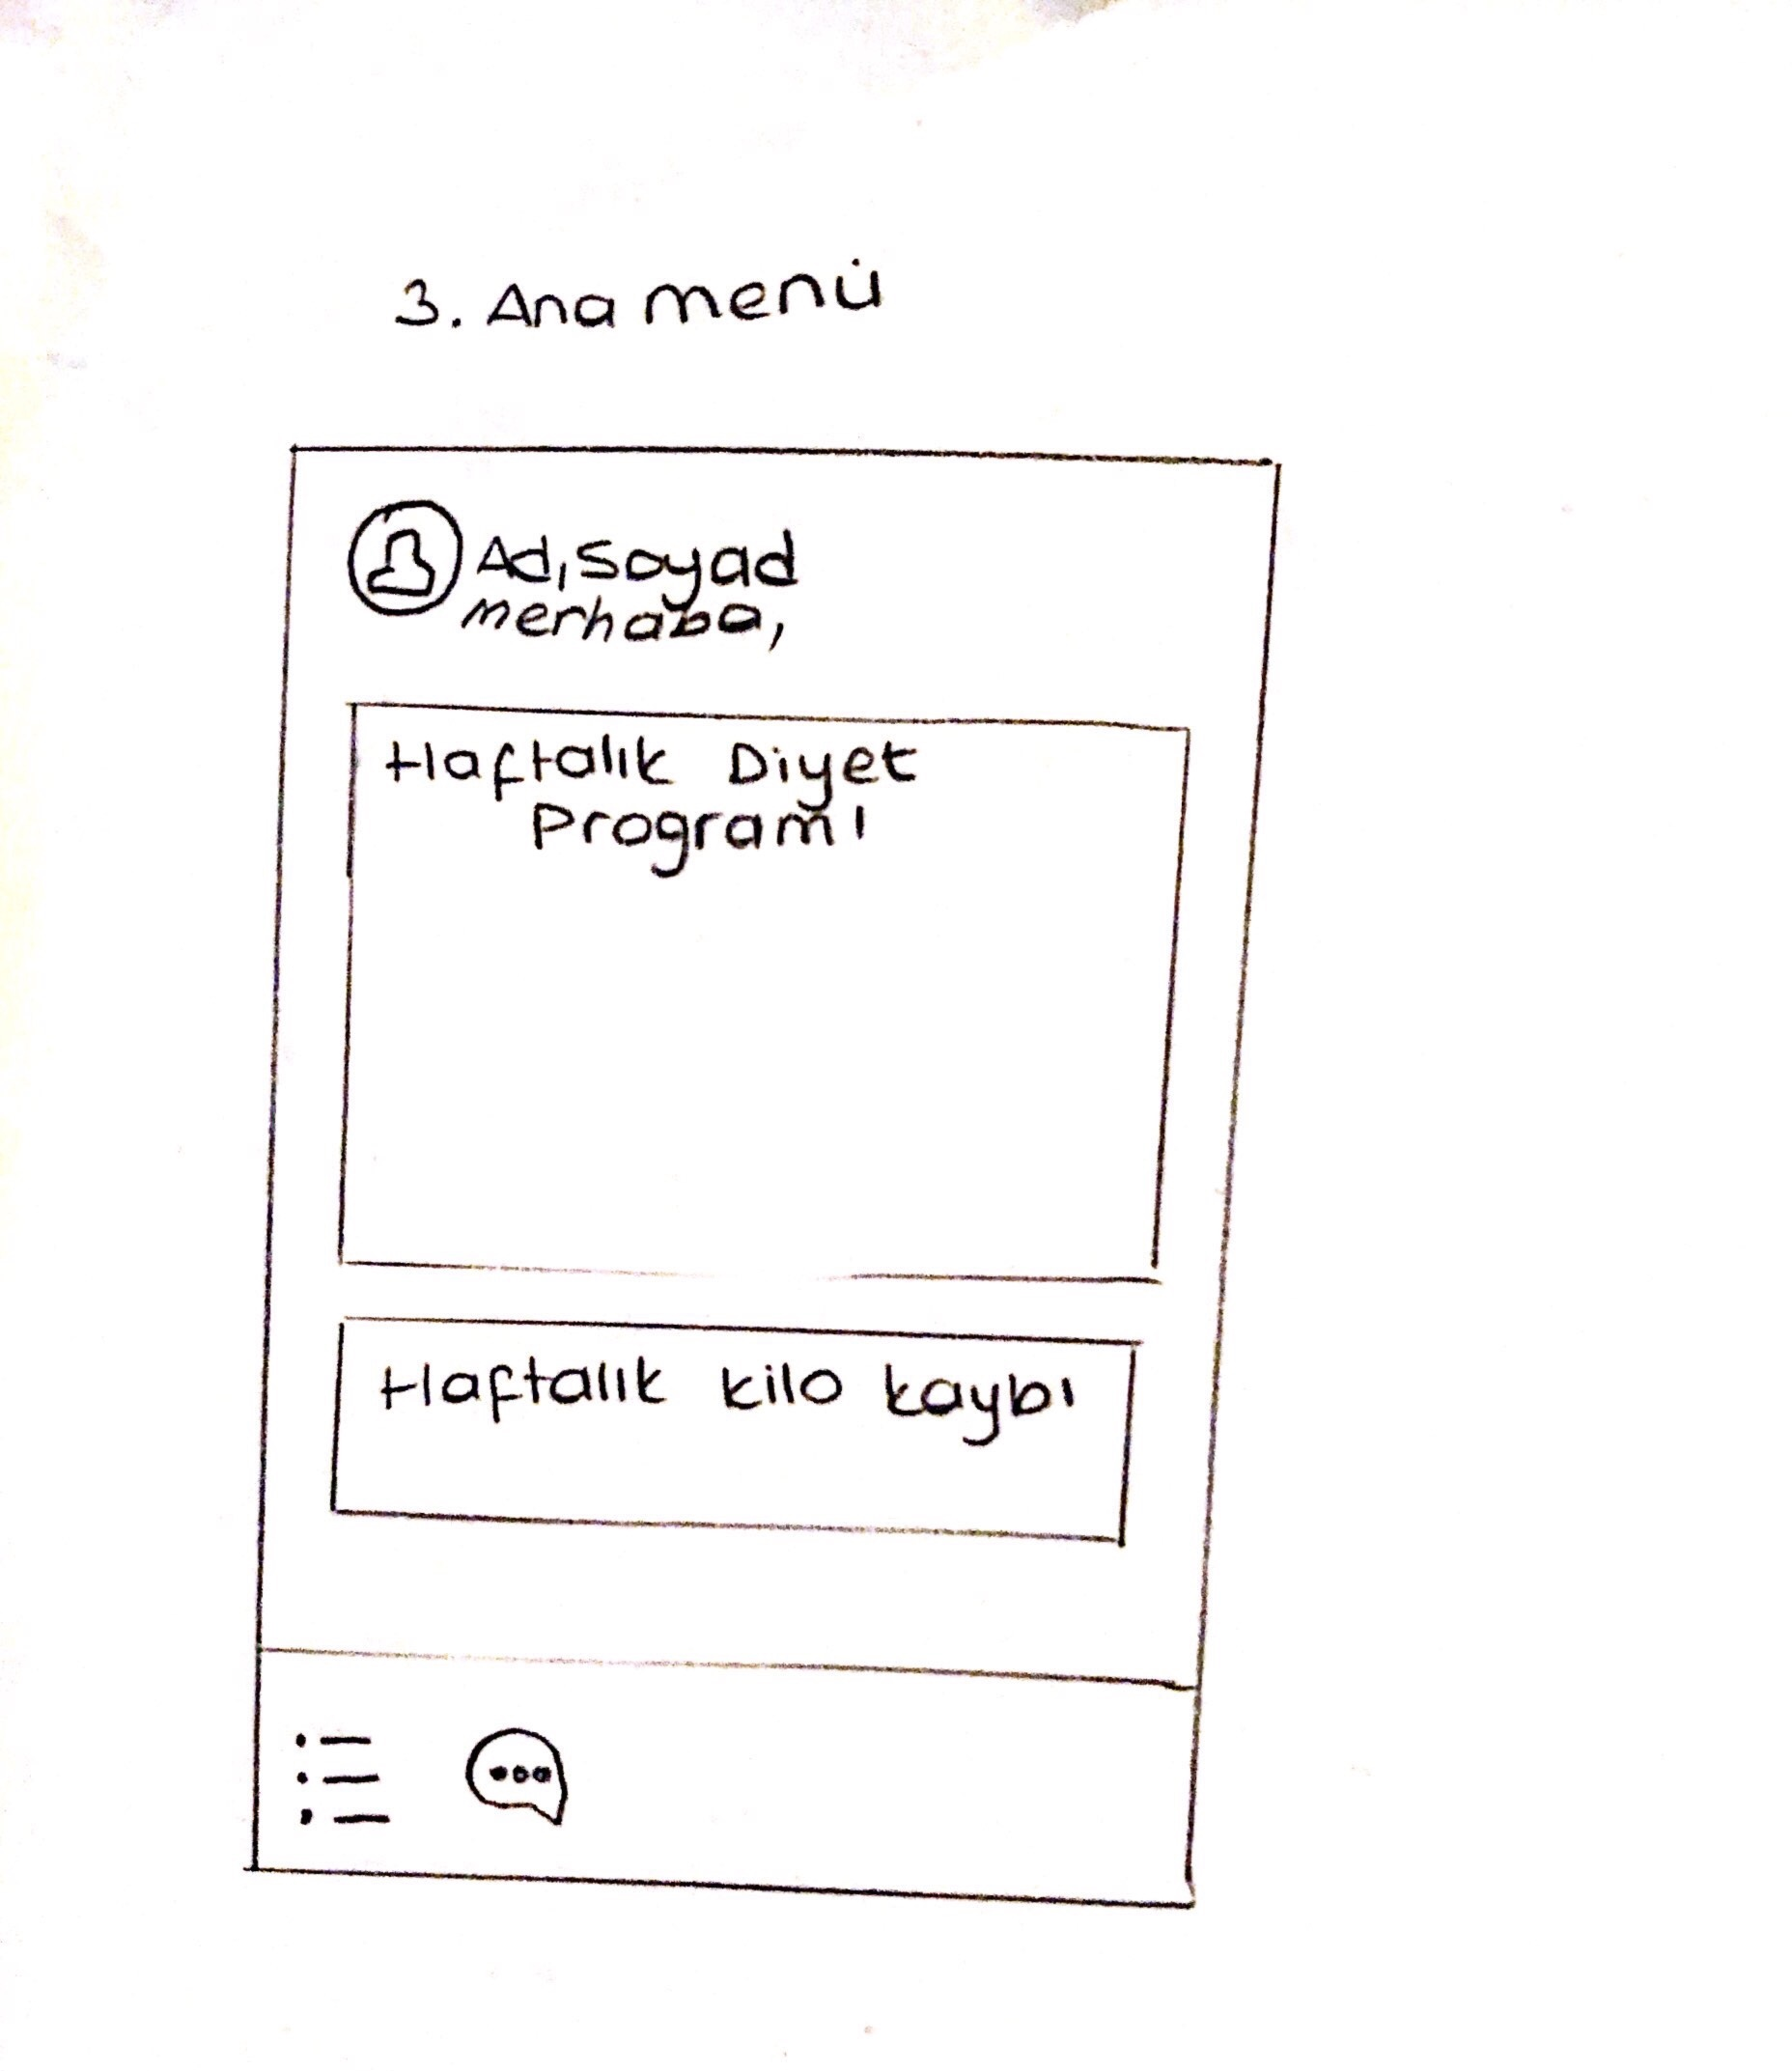 3. Ana menü
Ad, Soyad
merhaba,
Haftalık Diyet
Programı
Haftalık kilo kaybı